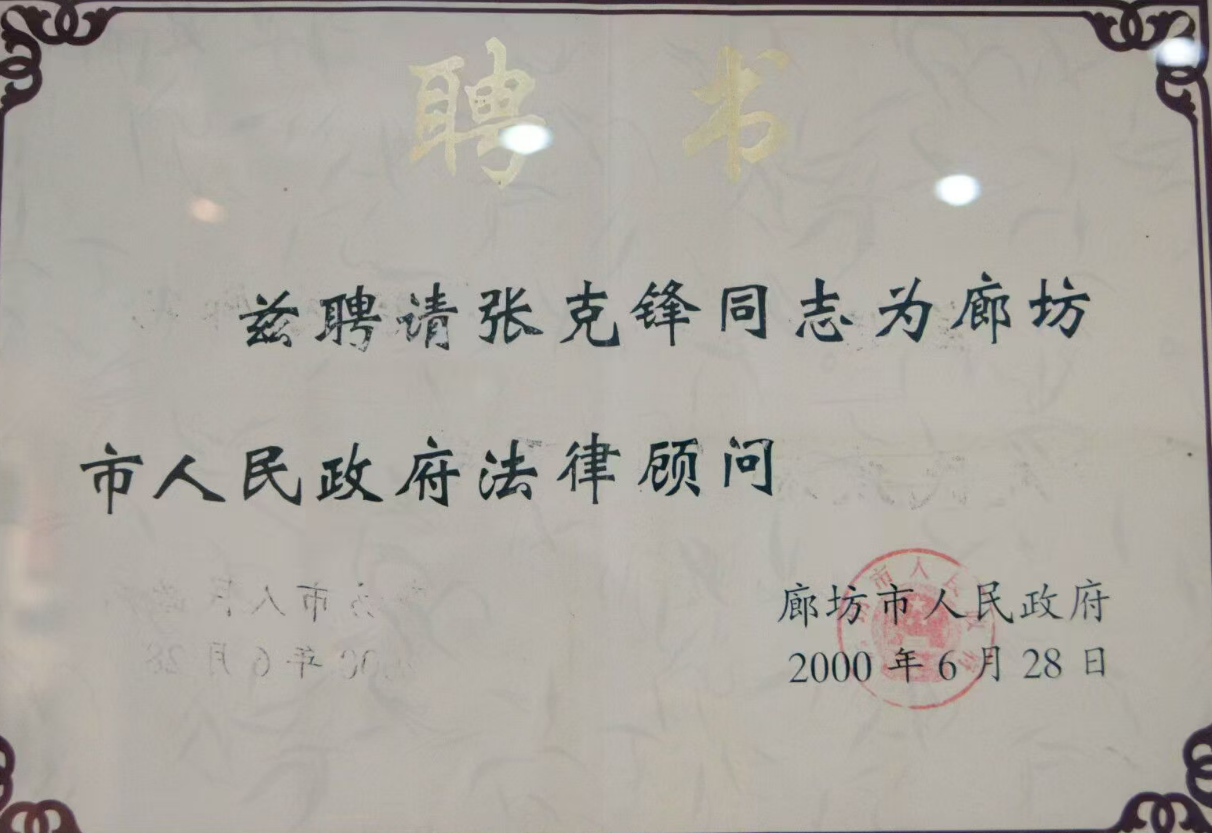 聘书
兹聘请张克锋同志为廊坊
市人民政府法律顾问
廊坊市人民政府
2000年6月28日